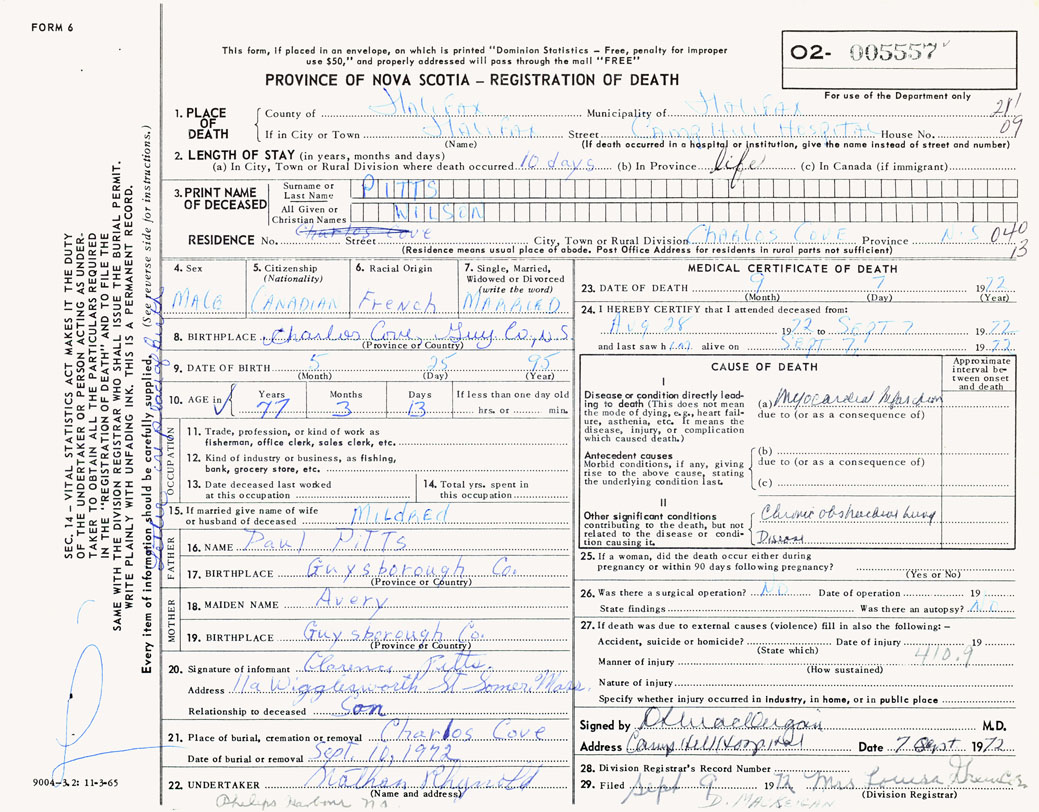 FORM 6
This form, if placed in an envelope, on which is printed "Dominion Statistics – Free, penalty for improper
use $50," and properly addressed will pass through the mail "FREE"
PROVINCE OF NOVA SCOTIA – REGISTRATION OF DEATH
02- 005557
For use of the Department only
281
09
1. PLACE OF DEATH
County of Halifax Municipality of Halifax
If in City or Town Halifax Street Camp Hill Hospital House No.
(Name) (If death occurred in a hospital or institution, give the name instead of street and number)
2. LENGTH OF STAY (in years, months and days)
(a) In City, Town or Rural Division where death occurred 10 days (b) In Province life (c) In Canada (if immigrant)
3. PRINT NAME OF DECEASED
Surname or Last Name PITTS
All Given or Christian Names WILSON
RESIDENCE No. Charles Cove Street City, Town or Rural Division Charles Cove Province N.S 040
13
(Residence means usual place of abode. Post Office Address for residents in rural parts not sufficient)
4. Sex
MALE
5. Citizenship
(Nationality)
CANADIAN
6. Racial Origin
French
7. Single, Married, Widowed or Divorced
(write the word)
MARRIED
8. BIRTHPLACE Charlos Cove, Guy Co, N.S
(Province or Country)
9. DATE OF BIRTH 5 25 95
(Month) (Day) (Year)
10. AGE in Years Months Days If less than one day old
77 3 13 hrs. or min.
OCCUPATION
11. Trade, profession, or kind of work as
fisherman, office clerk, sales clerk, etc.
12. Kind of industry or business, as fishing,
bank, grocery store, etc.
13. Date deceased last worked
at this occupation
14. Total yrs. spent in
this occupation
15. If married give name of wife
or husband of deceased MILDRED
FATHER
16. NAME Paul PITTS
17. BIRTHPLACE Guysborough Co.
(Province or Country)
MOTHER
18. MAIDEN NAME Avery
19. BIRTHPLACE Guysborough Co.
(Province or Country)
20. Signature of informant Clarence Pitts.
Address 11a Wigglesworth St Somer. Mass.
Relationship to deceased Son
21. Place of burial, cremation or removal Charlos Cove
Date of burial or removal Sept. 10, 1972
22. UNDERTAKER Nathan Rhynold
(Name and address)
Philips Harbour N.S.
MEDICAL CERTIFICATE OF DEATH
23. DATE OF DEATH 9 7 1972
(Month) (Day) (Year)
24. I HEREBY CERTIFY that I attended deceased from:
Aug 28 1972 to SEPT 7 1972
and last saw him alive on SEPT 7, 1972
CAUSE OF DEATH
Approximate interval between onset and death
I
Disease or condition directly leading to death (This does not mean the mode of dying, e.g., heart failure, asthenia, etc. It means the disease, injury, or complication which caused death.)
(a) Myocardial Infarction
due to (or as a consequence of)
Antecedent causes
Morbid conditions, if any, giving rise to the above cause, stating the underlying condition last.
(b)
due to (or as a consequence of)
(c)
II
Other significant conditions
contributing to the death, but not related to the disease or condition causing it.
Chronic obstructive lung
Disease
25. If a woman, did the death occur either during
pregnancy or within 90 days following pregnancy?
(Yes or No)
26. Was there a surgical operation? NO Date of operation 19
State findings Was there an autopsy? NO
27. If death was due to external causes (violence) fill in also the following: –
Accident, suicide or homicide? Date of injury 19
(State which)
410.9
Manner of injury
(How sustained)
Nature of injury
Specify whether injury occurred in industry, in home, or in public place
Signed by M.D.
Address Camp Hill Hospital Date 7 Sept 1972
28. Division Registrar's Record Number
29. Filed Sept 9 1972 Mrs Louisa
(Division Registrar)
D. MACKEIGAN
SEC. 14 – VITAL STATISTICS ACT MAKES IT THE DUTY
OF THE UNDERTAKER OR PERSON ACTING AS UNDERTAKER TO OBTAIN ALL THE PARTICULARS REQUIRED
IN THE "REGISTRATION OF DEATH" AND TO FILE THE
SAME WITH THE DIVISION REGISTRAR WHO SHALL ISSUE THE BURIAL PERMIT.
WRITE PLAINLY WITH UNFADING INK. THIS IS A PERMANENT RECORD.
Every item of information should be carefully supplied. (See reverse side for instructions.)
9004-3.2: 11-3-65